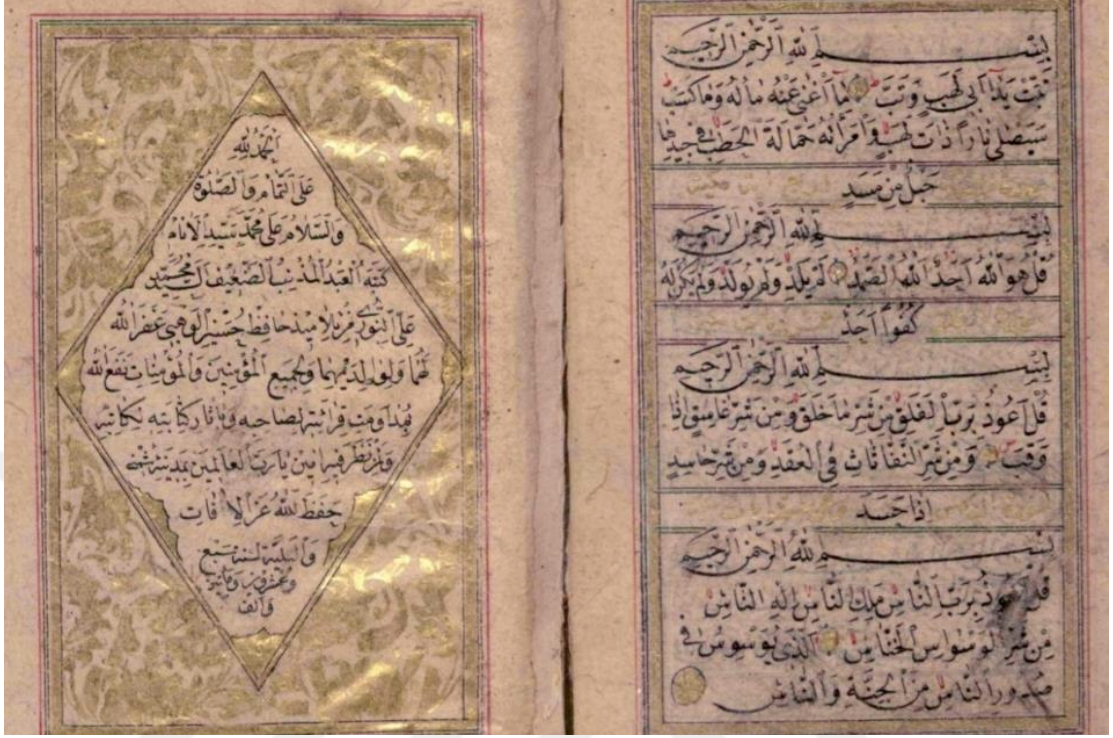 بِسْمِ اللهِ الرَّحْمٰنِ الرَّحِيمِ
تَبَّتْ يَدَا اَبِي لَهَبٍ وَتَبَّ مَا اَغْنٰى عَنْهُ مَالُهُ وَمَا كَسَبَ
سَيَصْلٰى نَارًا ذَاتَ لَهَبٍ وَامْرَاَتُهُ حَمَّالَةَ الْحَطَبِ فِي جِيدِهَا
حَبْلٌ مِنْ مَسَدٍ
بِسْمِ اللهِ الرَّحْمٰنِ الرَّحِيمِ
قُلْ هُوَ اللهُ اَحَدٌ اَللهُ الصَّمَدُ لَمْ يَلِدْ وَلَمْ يُولَدْ وَلَمْ يَكُنْ لَهُ
كُفُوًا اَحَدٌ
بِسْمِ اللهِ الرَّحْمٰنِ الرَّحِيمِ
قُلْ اَعُوذُ بِرَبِّ الْفَلَقِ مِنْ شَرِّ مَا خَلَقَ وَمِنْ شَرِّ غَاسِقٍ اِذَا
وَقَبَ وَمِنْ شَرِّ النَّفَّاثَاتِ فِي الْعُقَدِ وَمِنْ شَرِّ حَاسِدٍ
اِذَا حَسَدَ
بِسْمِ اللهِ الرَّحْمٰنِ الرَّحِيمِ
قُلْ اَعُوذُ بِرَبِّ النَّاسِ مَلِكِ النَّاسِ اِلٰهِ النَّاسِ
مِنْ شَرِّ الْوَسْوَاسِ الْخَنَّاسِ اَلَّذِي يُوَسْوِسُ فِي
صُدُورِ النَّاسِ مِنَ الْجِنَّةِ وَالنَّاسِ
اَلْحَمْدُ لِلهِ
عَلَى التَّمَامِ وَالصَّلٰوةُ
وَالسَّلَامُ عَلٰى مُحَمَّدٍ سَيِّدِ الْاَنَامِ
كَتَبَهُ الْعَبْدُ الْمُذْنِبُ الضَّعِيفُ
عَلِيّ النُّورِي مِنْ تلاميذ حَافِظ حُسَيْن الْوَهْبِي غَفَرَ اللهُ
لَهُمَا وَلِوَالِدَيْهِمَا وَلِجَمِيعِ الْمُؤْمِنِينَ وَالْمُؤْمِنَاتِ نَفَعَ اللهُ
بمداومت قرائته لصاحبه وباثار كتابته لكاتبه
ولمن نظر فيه امين يارب العالمين بمدينة
حفظ الله عن الافات
والبلية لسنة سبع
وعشرين ومائتين
والف